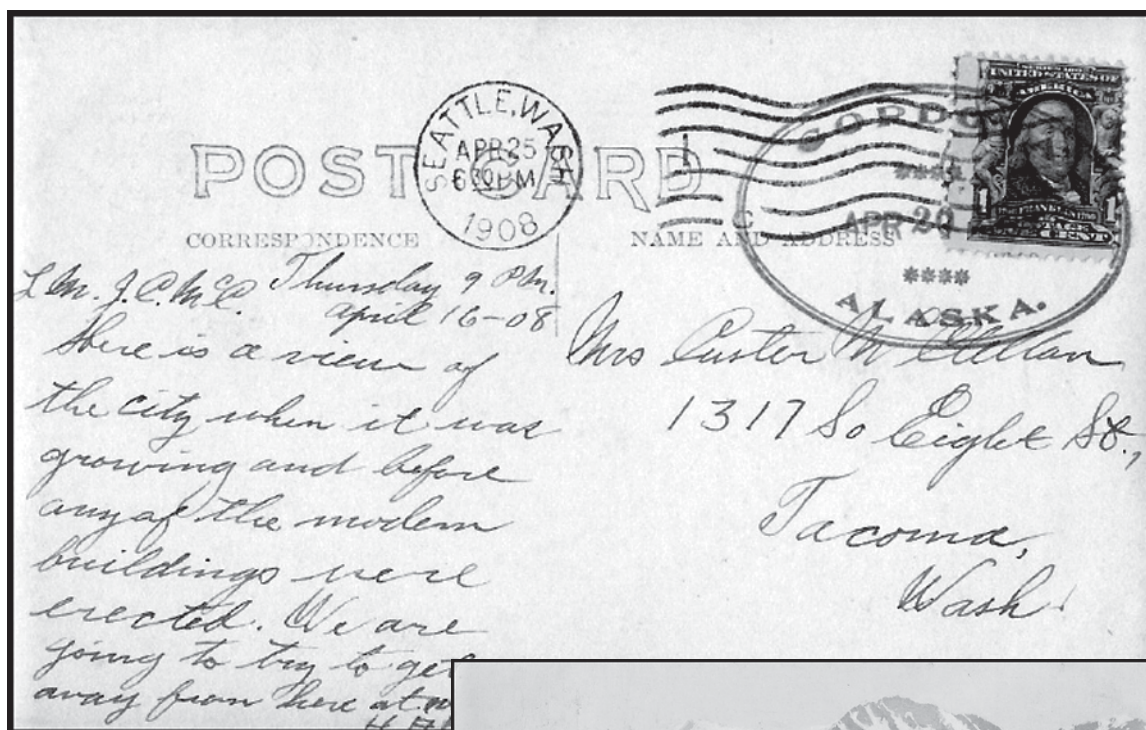 POST CARD
SEATTLE, WASH.
APR 25
6 30 PM
1908
CORDO
****
APR 20
****
ALASKA.
SERIES 1902
UNITED STATES OF
AMERICA
1 1
CORRESPONDENCE
NAME AND ADDRESS
Thursday 9 PM.
April 16-08
Here is a view of
the city when it was
growing and before
any of the modern
buildings were
erected. We are
going to try to get
away from here at
Mrs Custer McClellan
1317 So Eight St.,
Tacoma,
Wash.